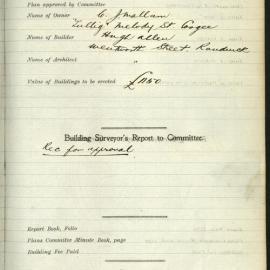 Plan approved by Committee
Name of Owner C. J. Mallam
Melody St. Coogee
Name of Builder Hugh Allen
Wentworth Street Randwick
Name of Architect "
Value of Buildings to be erected £1150
Building Surveyor's Report to Committee.
Rec for approval
Report Book, Folio
Plans Committee Minute Book, page
Building Fee Paid